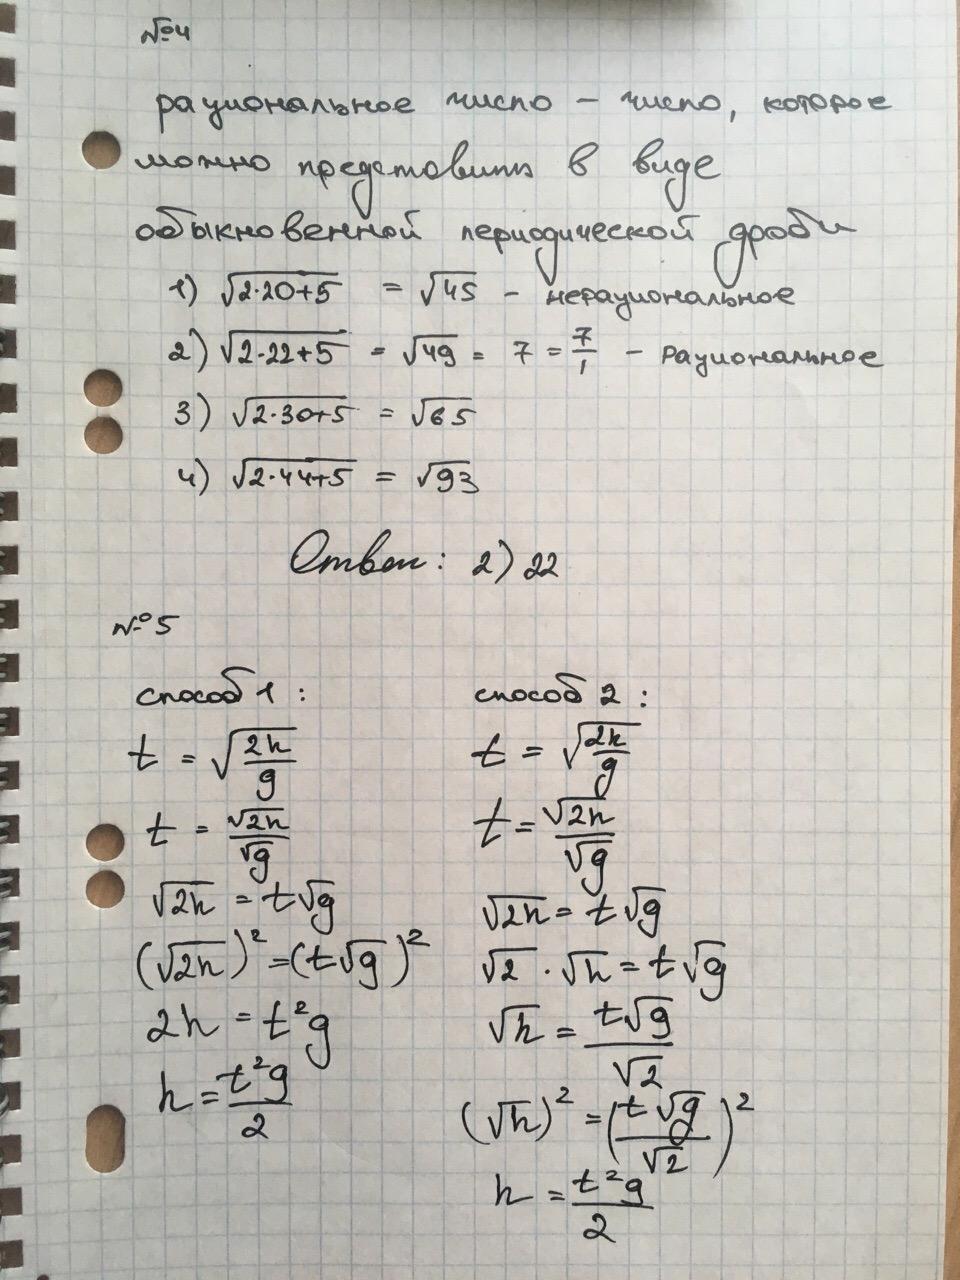 №4
рациональное число – число, которое
можно представить в виде
обыкновенной периодической дроби
1) √(2·20+5) = √45 – нерациональное
2) √(2·22+5) = √49 = 7 = 7/1 – рациональное
3) √(2·30+5) = √65
4) √(2·44+5) = √93
Ответ: 2) 22
№5
способ 1:
t = √(2h/g)
t = √2h/√g
√2h = t√g
(√2h)² = (t√g)²
2h = t²g
h = t²g/2
способ 2:
t = √(2h/g)
t = √2h/√g
√2h = t√g
√2 · √h = t√g
√h = t√g/√2
(√h)² = (t√g/√2)²
h = t²g/2